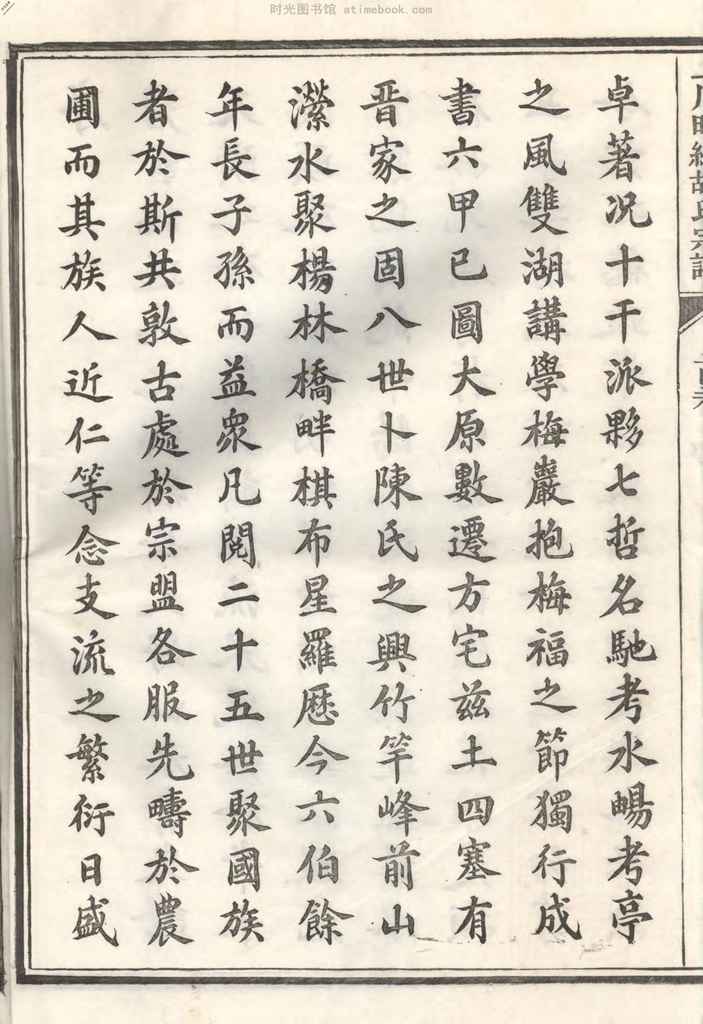 时光图书馆 atimebook.com
卓著况十干派夥七哲名馳考水暢考亭
之風雙湖講學梅巖抱梅福之節獨行成
書六甲已圖大原數遷方宅兹土四塞有
晋家之固八世卜陳氏之興竹竿峰前山
瀠水聚楊林橋畔棋布星羅歷今六伯餘
年長子孫而益衆凡閱二十五世聚國族
者於斯共敦古處於宗盟各服先疇於農
圃而其族人近仁等念支流之繁衍日盛